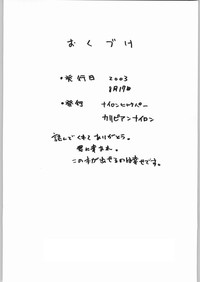 おくづけ
・発行日 2003
8月19日
・発行 ナイロンヒッチペーパー
カリビアンナイロン
読んでくれてありがとう。
君に幸あれ。
この本が出せるのは幸せです。